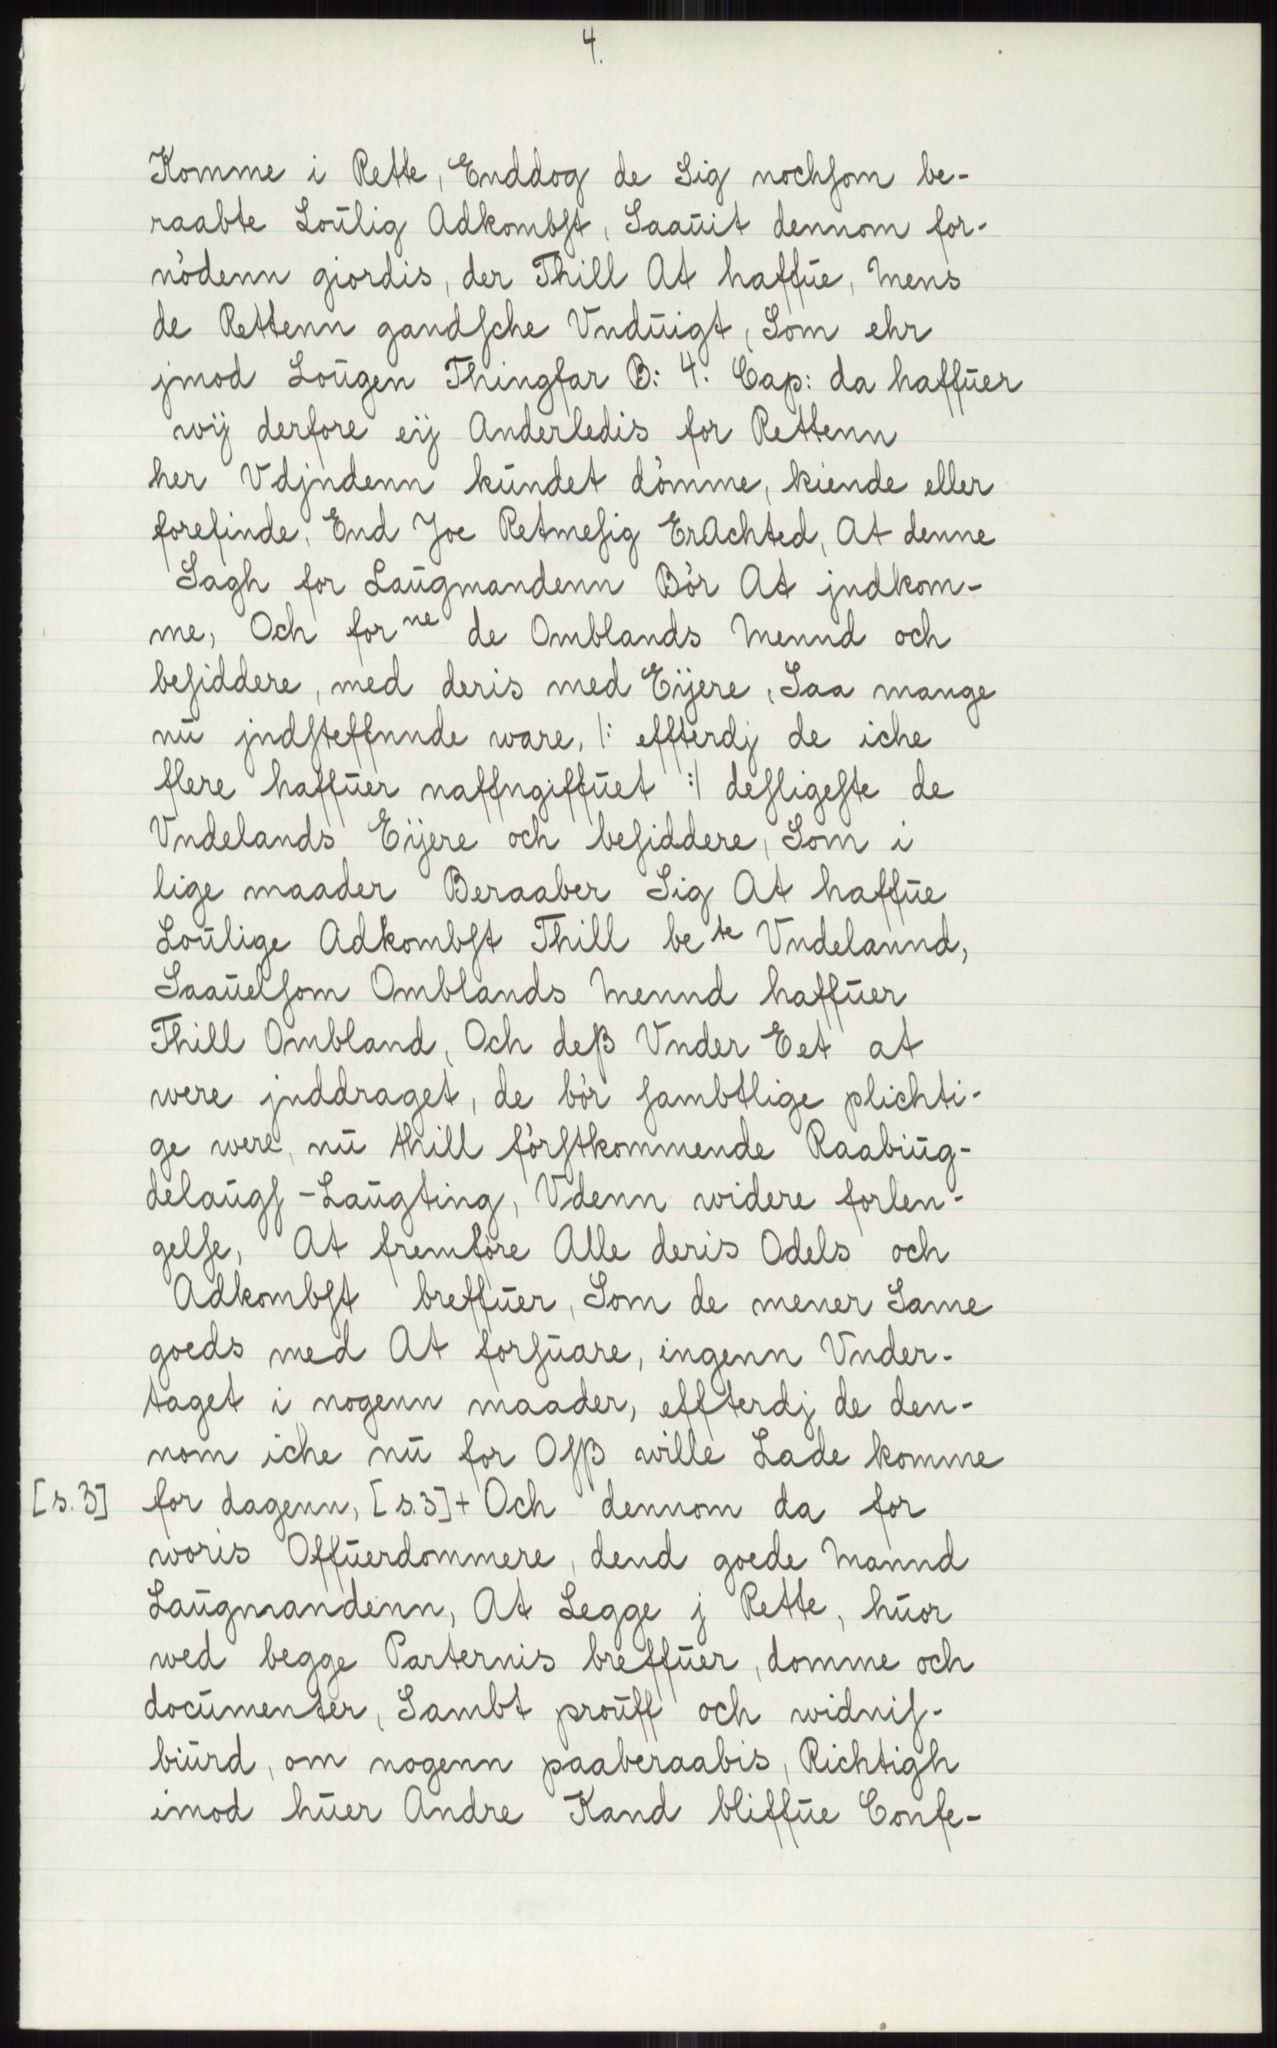 4.
Komme i Rette, Enddog de Sig nochsom be-
raabte Loŭlig Adkombst, Saaŭit dennom for-
nödenn giordis, der Thill At haffŭe, Mens
de Rettenn gandsche Vndŭigt, Som ehr
jmod Loŭgen Thingfar B: 4. Cap: da haffŭer
wÿ derfore eÿ Anderledis for Rettenn
her Vdjndenn kŭndet dömme, kiende eller
forefinde, End Joe Retmesig ErAchted, At denne
Sagh for Laŭgmandenn Bör At jndkom-
me, Och for ne de Omblands Mennd och
besiddere, med deris med Eÿere, Saa mange
nŭ jndsteffnnde ware, /: effterdj de iche
flere haffŭer naffngiffŭet :/ desligeste de
Vndelands Eÿere och besiddere, Som i
lige maader Beraaber Sig At haffŭe
Loŭlige Adkombst Thill be te Vndelannd,
Saaŭelsom Omblands Mennd haffŭer
Thill Ombland, Och deß Vnder Eet at
were jnddraget, de bör sambtlige plichti-
ge were, nŭ thill förstkommende Raabiŭg-
delaŭgs-Laŭgting, Vdenn widere forlen-
gelse, At fremföre Alle deris Odels och
Adkombst breffŭer, Som de mener Same
goeds med At forsŭare, ingenn Vnder-
taget i nogenn maader, effterdj de den-
nom iche nŭ for Osß wille Lade komme
[s. 3] for dagenn, [s.3] + Och dennom da for
woris Offŭerdommere, dend goede Mannd
Laŭgmandenn, At Legge j Rette, hŭor
wed begge Parternis breffŭer, domme och
documenter, Sambt proŭff och widnis-
biŭrd, om nogenn paaberaabis, Richtigh
imod hŭer Andre Kand bliffŭe Confe-